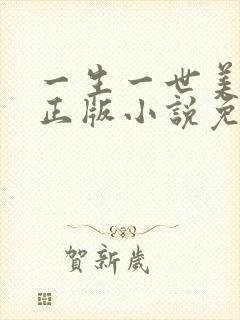 一生一世美
正版小說免
賀新歲